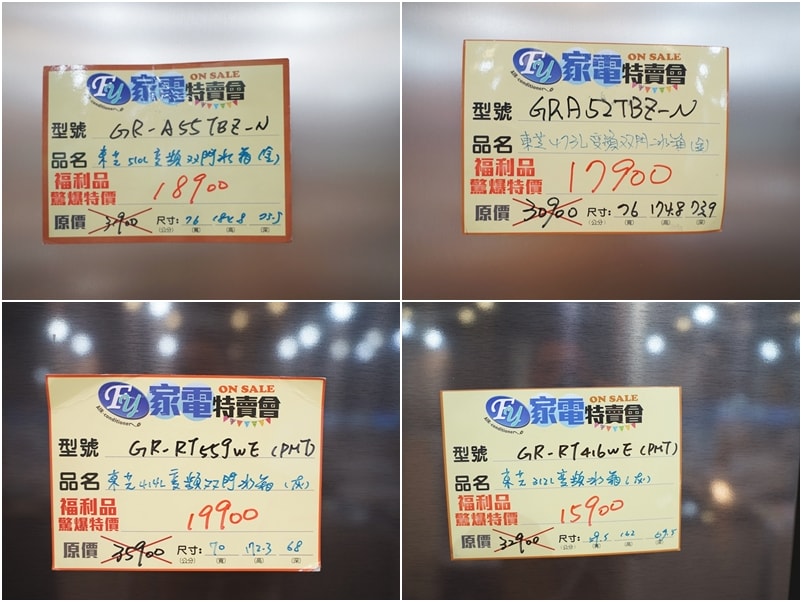 FU 家電 ON SALE
Air-conditioner 特賣會
型號 GR-A55TBZ-N
品名 東芝510L變頻双門冰箱(金)
福利品
驚爆特價 18900
原價 尺寸: 76 184.8 75.5
(公分) (寬) (高) (深)
FU 家電 ON SALE
Air-conditioner 特賣會
型號 GRA52TBZ-N
品名 東芝473L變頻双門冰箱(金)
福利品
驚爆特價 17900
原價 30900 尺寸: 76 174.8 73.9
(公分) (寬) (高) (深)
FU 家電 ON SALE
Air-conditioner 特賣會
型號 GR-RT559WE (PMT)
品名 東芝414L變頻双門冰箱(灰)
福利品
驚爆特價 19900
原價 35900 尺寸: 70 172.3 68
(公分) (寬) (高) (深)
FU 家電 ON SALE
Air-conditioner 特賣會
型號 GR-RT416WE (PMT)
品名 東芝312L變頻冰箱(灰)
福利品
驚爆特價 15900
原價 32900 尺寸: 59.5 162
(公分) (寬) (高) (深)